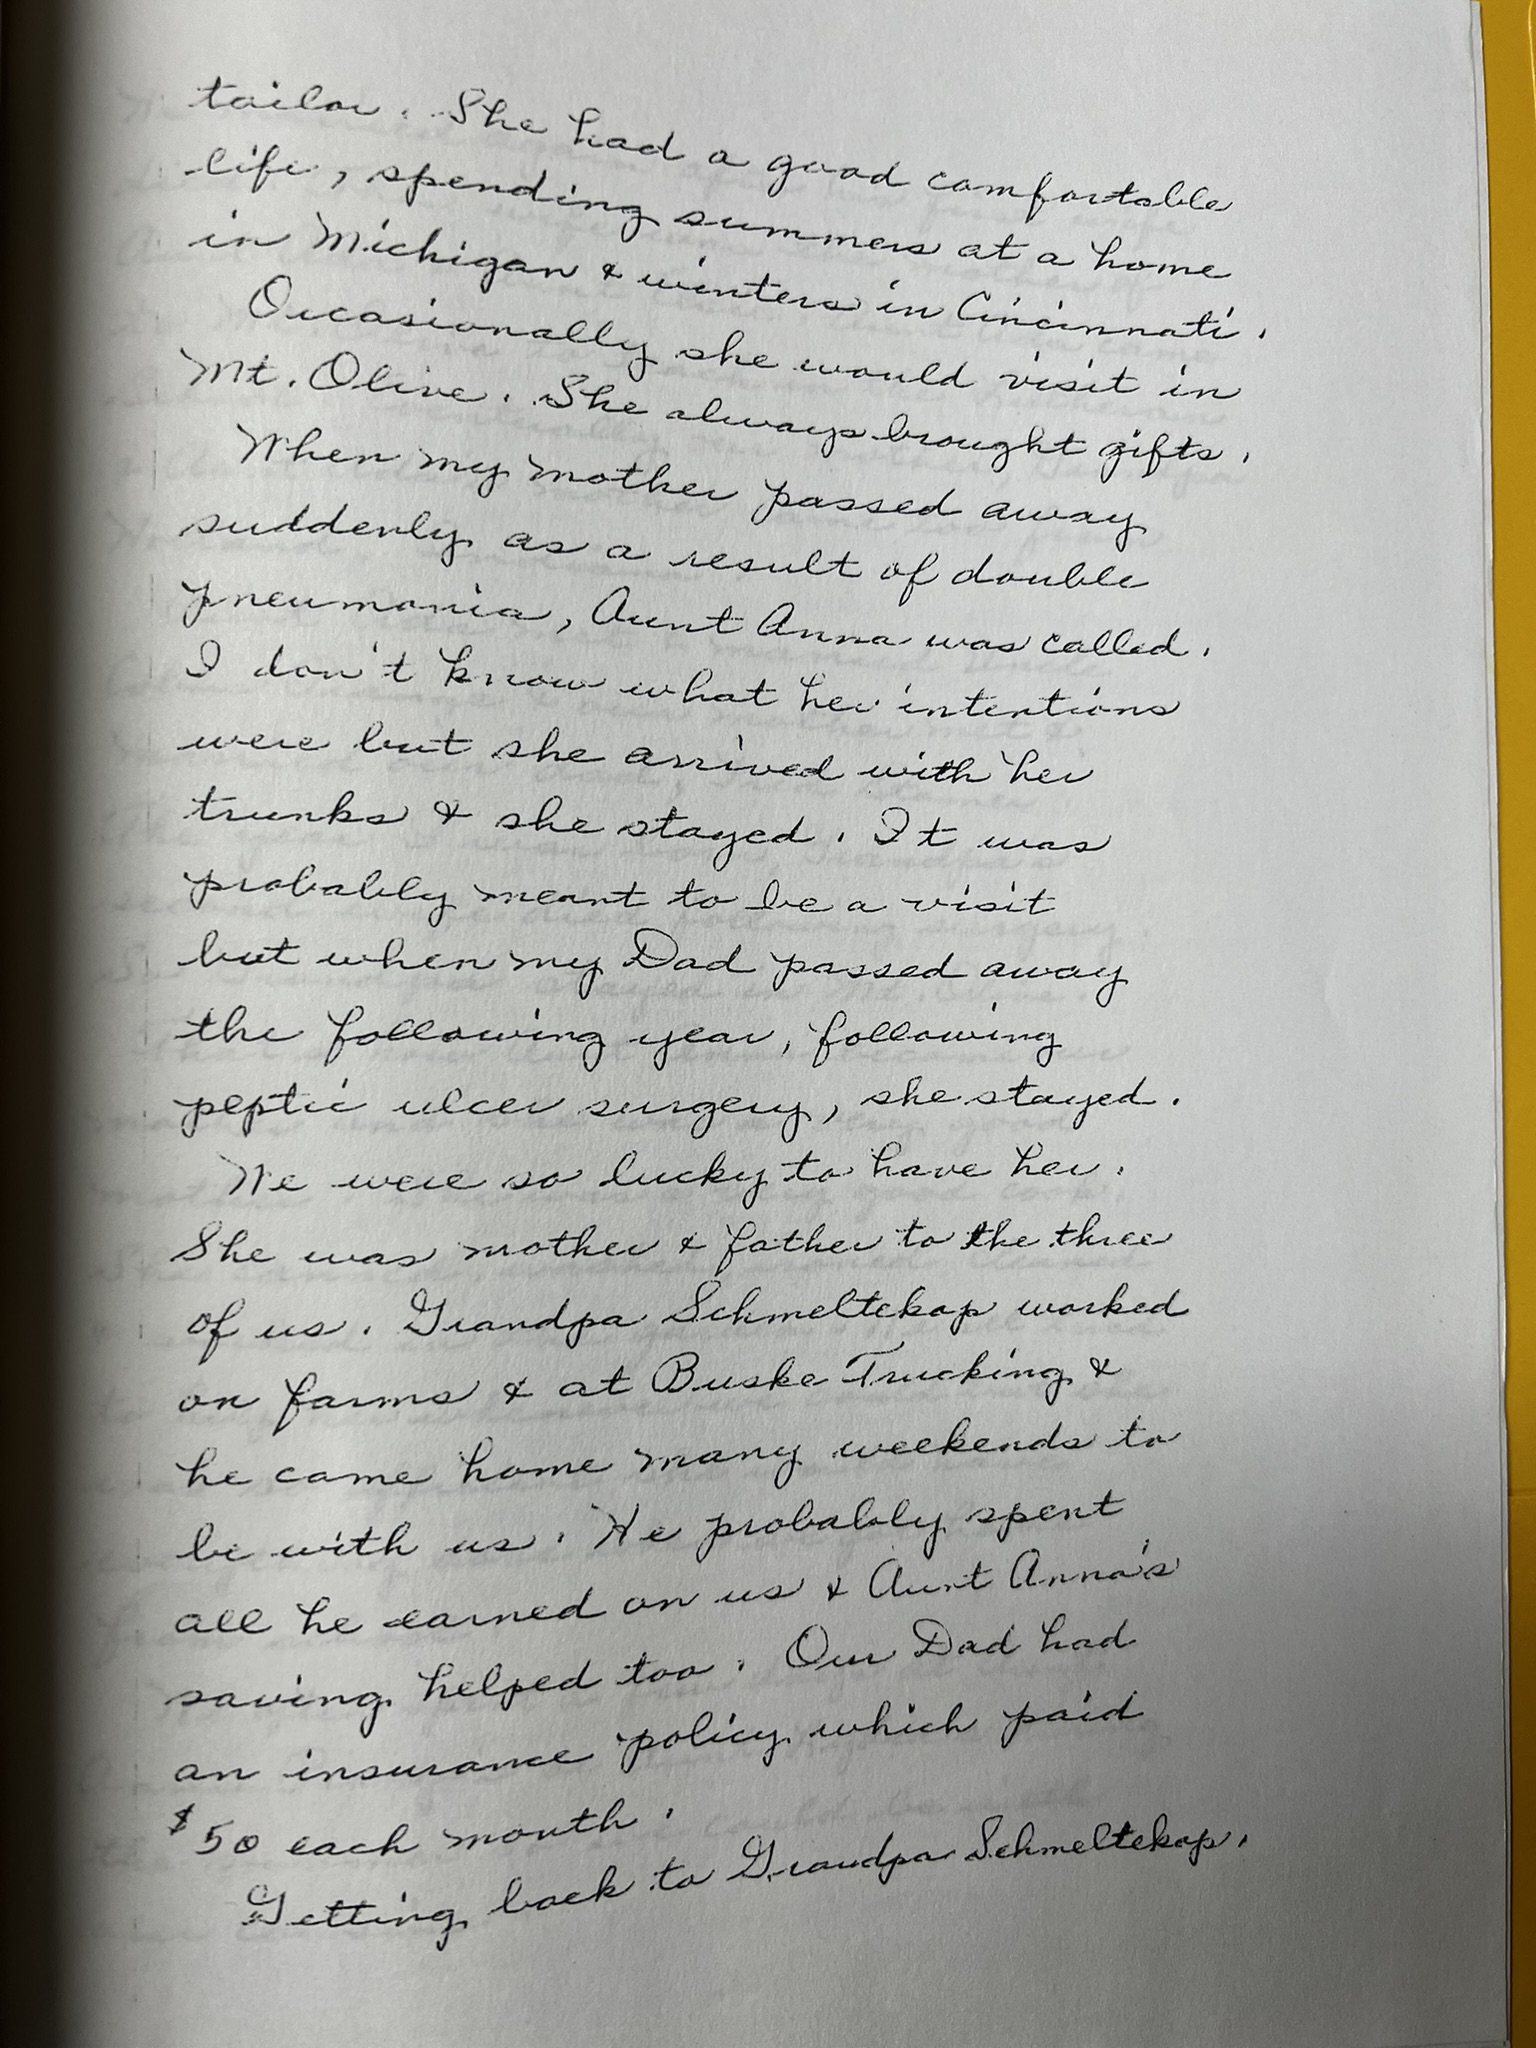 tailor. She had a good comfortable
life, spending summers at a home
in Michigan & winters in Cincinnati.
Occasionally she would visit in
Mt. Olive. She always brought gifts.
When my mother passed away
suddenly as a result of double
pneumonia, Aunt Anna was called.
I don't know what her intentions
were but she arrived with her
trunks & she stayed. It was
probably meant to be a visit
but when my Dad passed away
the following year, following
peptic ulcer surgery, she stayed.
We were so lucky to have her.
She was mother & father to the three
of us. Grandpa Schmeltekop worked
on farms & at Buske Trucking &
he came home many weekends to
be with us. He probably spent
all he earned on us & Aunt Anna's
saving helped too. Our Dad had
an insurance policy which paid
$50 each month.
Getting back to Grandpa Schmeltekop.